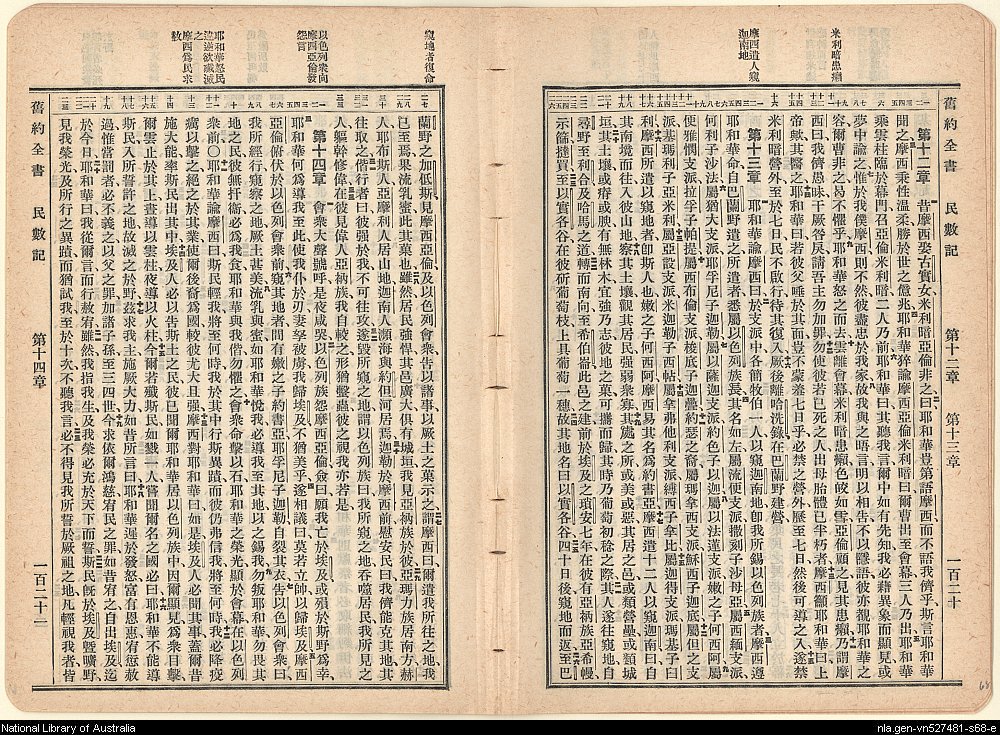 米利暗患癩
摩西遣人窺
迦南地
舊約全書 民數記 第十二章 第十三章 一百二十
第十二章 昔摩西娶古實女米利暗亞倫非之曰耶和華豈第語摩西而不語我儕乎斯言耶和華
聞之摩西秉性溫柔勝於世之億兆耶和華猝諭摩西亞倫米利暗曰爾曹出至會幕三人乃出耶和華
乘雲柱臨於幕門召亞倫米利暗二人乃前耶和華曰其聽我言爾中如有先知我必藉異象而顯見或
夢中諭之惟於我僕摩西則不然彼盡忠於我家故我與之晤言明以相告不以隱語彼亦覩耶和華之
容爾曹非之曷不懼乎耶和華怒之而去雲離會幕米利暗患癩色皎如雪亞倫顧之見其患癩乃謂摩
西曰我儕愚昧干厥咎戾請吾主勿加罪勿使彼若已死之人出母胎體已半朽者摩西籲耶和華曰上
帝歟其醫之耶和華曰若彼父唾於其面豈不蒙羞七日乎必禁之營外歷至七日然後可導之入遂禁
米利暗營外至於七日民不啟行待其復入厥後離哈洗錄在巴蘭野建營
第十三章 耶和華諭摩西曰於支派中各簡牧伯一人以窺迦南地卽我所錫以色列族者摩西遵
耶和華命自巴蘭野遣之所遣者悉屬以色列族長其名如左屬流便支派撒刻子沙母亞屬西緬支派
何利子沙法屬猶大支派耶孚尼子迦勒屬以薩迦支派約色子以迦屬以法蓮支派嫩之子何西阿屬
便雅憫支派拉孚子帕提屬西布倫支派梭底子迦疊約瑟之裔屬瑪拿西支派穌西子迦底屬但之支
派基瑪利子亞米利屬亞設支派米迦勒子西帖屬拿弗他利支派縛西子拿比屬迦得支派瑪基子臼
利摩西所遣以窺地者卽斯人也嫩之子何西阿摩西易其名爲約書亞摩西遣十二人以窺迦南曰自
其南境而往入彼山地察其土壤觀其居民强弱衆寡其處之所或美或惡其居之邑或類營壘或類城
垣其土壤或瘠或腴有無林木宜強乃志彼地之菓可攜而歸其時乃葡萄初稔之際其人遂往窺地自
尋野至利合及哈馬之道轉而南向至希伯崙此邑之建前於埃及之瑣安七年在彼有亞衲族亞希幔
示篩撻買至以實各谷在彼斫葡萄枝上具葡萄一穗故其地名曰以實各谷四十日後窺地而返至巴
窺地者復命
以色列衆向
摩西亞倫發
怨言
耶和華怒民
違逆欲殲滅
之
摩西爲民求
赦
蘭野之加低斯見摩西亞倫及以色列會衆告以諸事以厥土之菓示之謂摩西曰爾遣我所往之地我
已至焉果流乳蜜此其菓也雖然居民强悍其邑廣大俱有城垣我見亞衲族於彼亞瑪力族居南方赫
人耶布斯人亞摩利人居山地迦南人瀕海與約但河居焉迦勒於摩西前慰安民曰我儕能克其地其
往取之偕行者曰彼强於我不可往攻遂毀所窺之地謂以色列族曰我所窺之地吞噬居民我所見之
人軀幹修偉在彼見偉人亞衲族我自較之形猶螽蟲彼之視我亦若是
第十四章 會衆大聲號呼是夜咸哭以色列族怨摩西亞倫僉曰願我亡於埃及或殞於斯野爲幸
耶和華何爲導我至此使我仆於刃妻孥被虜我歸埃及不猶美乎遂相議曰莫若立帥以歸埃及摩西
亞倫俯伏於以色列會衆前窺地者間有嫩之子約書亞耶孚尼子迦勒自裂其衣告以色列會衆曰
我所經行窺察之地厥土甚美流乳與蜜如耶和華悅我必導我至其地以之錫我勿叛耶和華勿畏其
地之民彼無扞衞必爲我食耶和華與我偕勿懼之會衆命擊以石耶和華之榮光顯於會幕在以色列
衆前〇耶和華諭摩西曰斯民輕我將至何時我於其中行斯異蹟而彼仍弗信我將至何時我必降疫
癘以擊之絕之於其業使爾後裔爲國較彼尤大且强摩西對耶和華曰如是埃及人必聞其事蓋爾昔
施大能率斯民出其中埃及人必以告斯土之民彼已聞爾耶和華居以色列族中因爾顯見爲衆目擊
爾雲止於其上晝導以雲柱夜導以火柱今爾若殲斯民如戮一人嘗聞爾名之國必曰耶和華不能導
斯民入所誓許之地故滅之於野茲求我主施厥大力如昔所言曰耶和華遲於發怒富有恩惠宥愆赦
過惟當罰者必不義之以父之罪加諸子孫至三四世今求依爾鴻慈宥民之罪如昔宥之自出埃及迄
於今日耶和華曰我從爾言而行赦宥雖然我指我生及我榮必充於天下而誓斯民旣於埃及曁曠野
見我榮光及所行之異蹟而猶試我至於十次不聽我言必不得見我所誓於厥祖之地凡輕視我者皆
舊約全書 民數記 第十四章 一百二十一
National Library of Australia
nla.gen-vn527481-s68-e